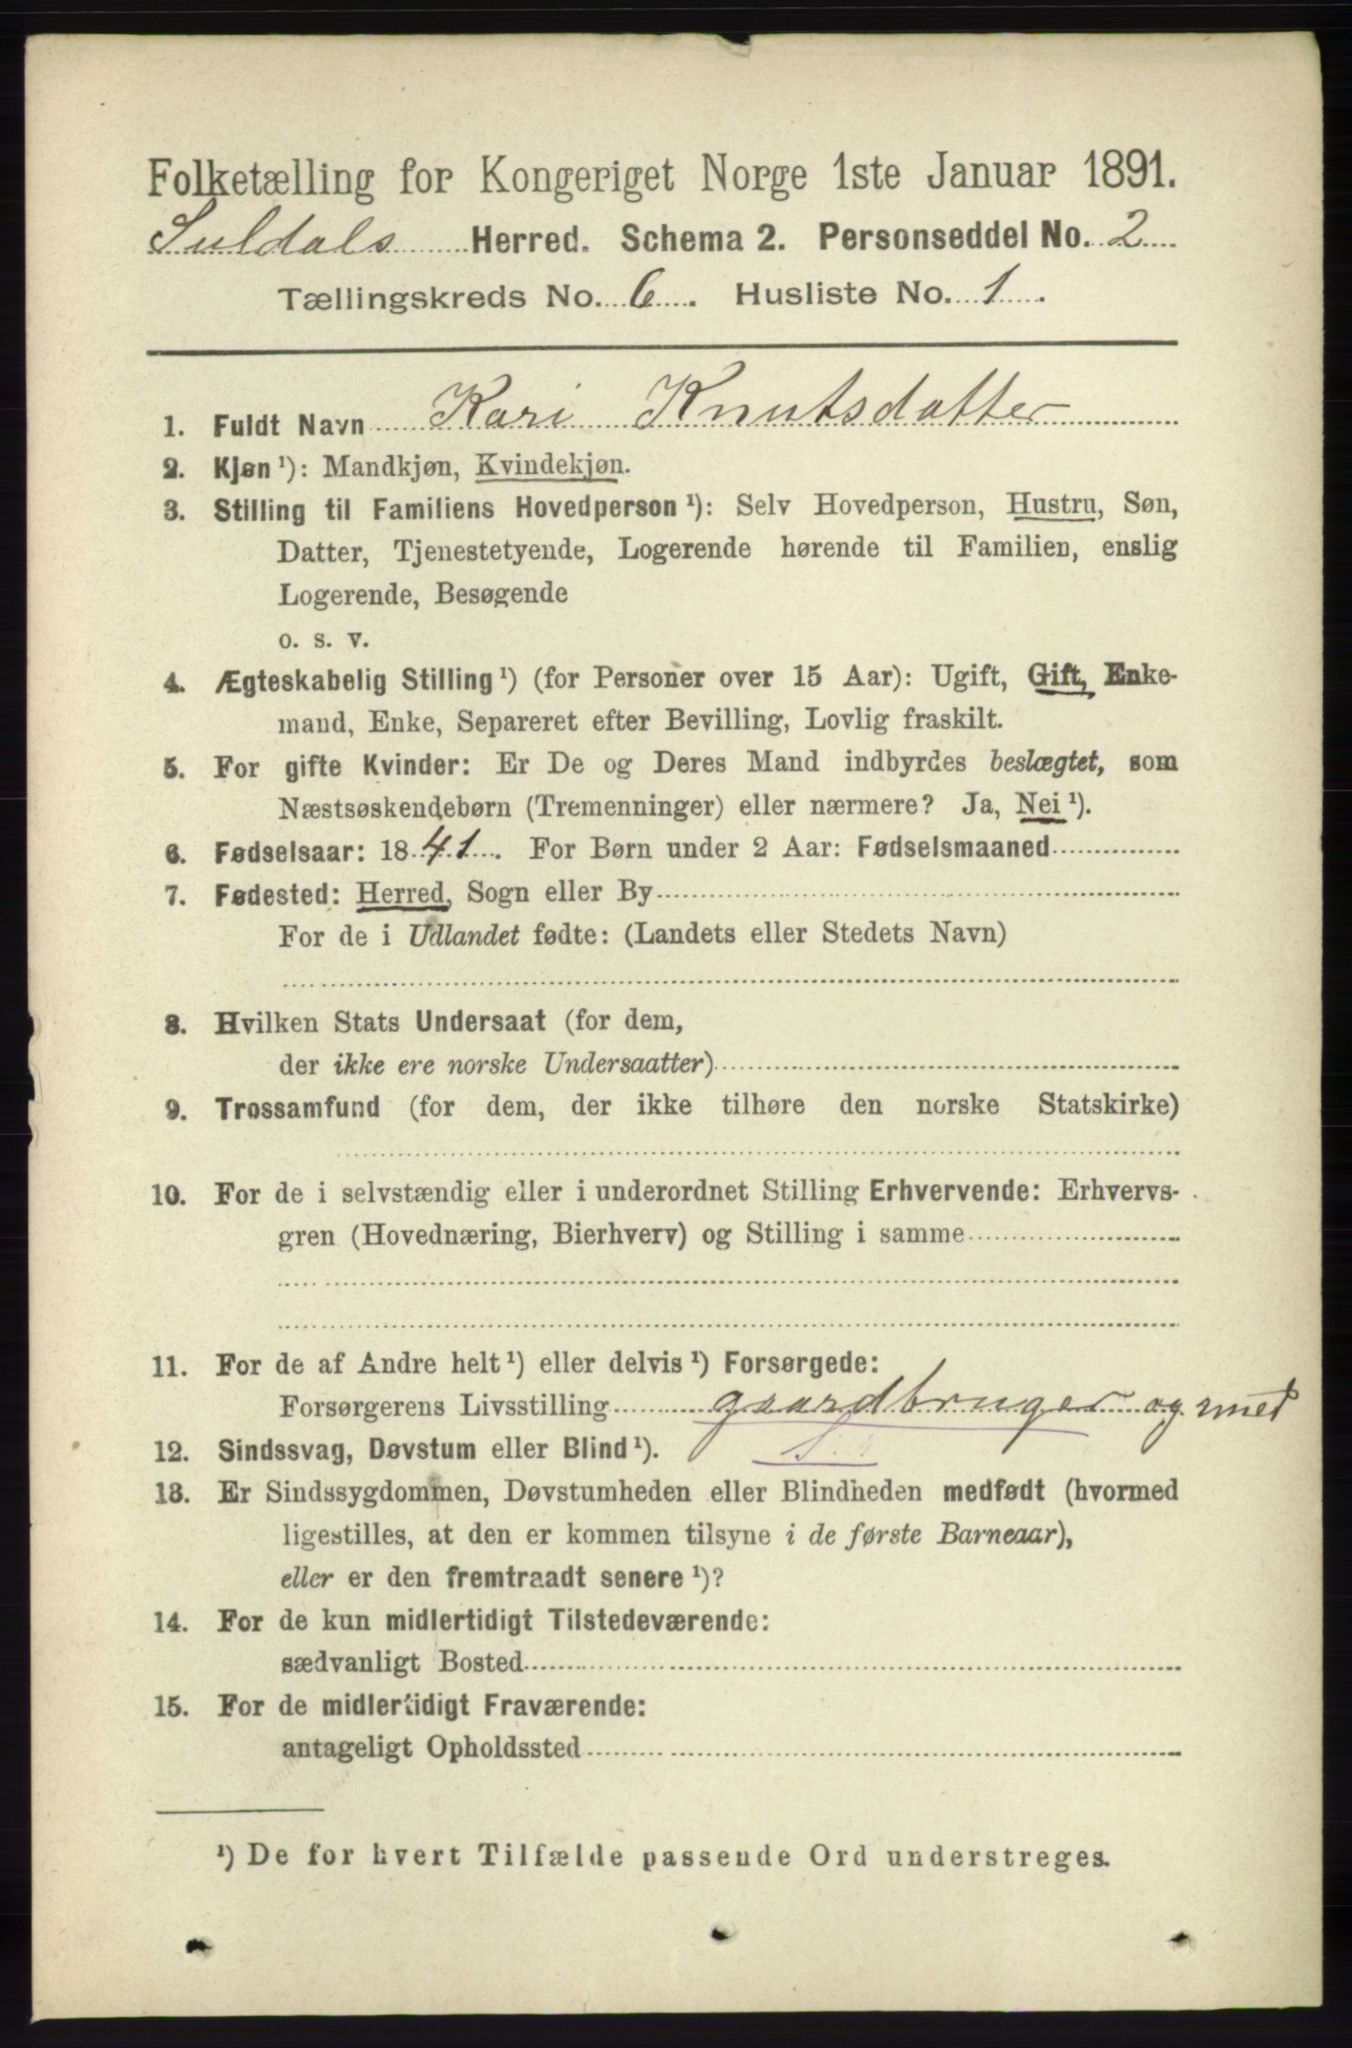 Folketælling for Kongeriget Norge 1ste Januar 1891.
Suldals Herred. Schema 2. Personseddel No. 2
Tællingskreds No. 6. Husliste No. 1.
1. Fuldt Navn Kari Knutsdatter
2. Kjøn¹): Mandkjøn, Kvindekjøn.
3. Stilling til Familiens Hovedperson¹): Selv Hovedperson, Hustru, Søn,
Datter, Tjenestetyende, Logerende hørende til Familien, enslig
Logerende, Besøgende
o. s. v.
4. Ægteskabelig Stilling¹) (for Personer over 15 Aar): Ugift, Gift, Enke-
mand, Enke, Separeret efter Bevilling, Lovlig fraskilt.
5. For gifte Kvinder: Er De og Deres Mand indbyrdes beslægtet, som
Næstsøskendebørn (Tremenninger) eller nærmere? Ja, Nei¹).
6. Fødselsaar: 1841. For Børn under 2 Aar: Fødselsmaaned
7. Fødested: Herred, Sogn eller By
For de i Udlandet fødte: (Landets eller Stedets Navn)
8. Hvilken Stats Undersaat (for dem,
der ikke ere norske Undersaatter)
9. Trossamfund (for dem, der ikke tilhøre den norske Statskirke)
10. For de i selvstændig eller i underordnet Stilling Erhvervende: Erhvervs-
gren (Hovednæring, Bierhverv) og Stilling i samme
11. For de af Andre helt¹) eller delvis¹) Forsørgede:
Forsørgerens Livsstilling gaardbruger og smed
12. Sindssvag, Døvstum eller Blind¹).
13. Er Sindssygdommen, Døvstumheden eller Blindheden medfødt (hvormed
ligestilles, at den er kommen tilsyne i de første Barneaar),
eller er den fremtraadt senere¹)?
14. For de kun midlertidigt Tilstedeværende:
sædvanligt Bosted
15. For de midlertidigt Fraværende:
antageligt Opholdssted
¹) De for hvert Tilfælde passende Ord understreges.